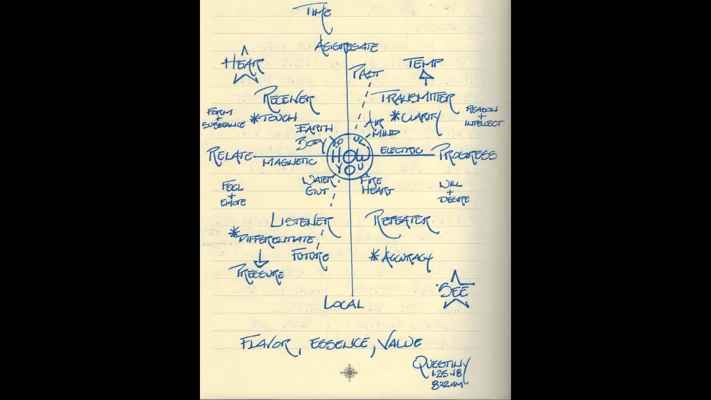 TIME
AGGREGATE
HEAR
PAST
TEMP
RECEIVER
TRANSMITTER
*TOUCH
*CLARITY
FORM
+
SUBSTANCE
REASON
+
INTELLECT
EARTH
BODY
AIR
MIND
HOW
YOU
RELATE
MAGNETIC
ELECTRIC
PROGRESS
WATER
GUT
FIRE
HEART
FEEL
+
EMOTE
WILL
+
DESIRE
LISTENER
REPEATER
*DIFFERENTIATE
FUTURE
*ACCURACY
PRESSURE
SEE
LOCAL
FLAVOR, ESSENCE, VALUE
1·25·18